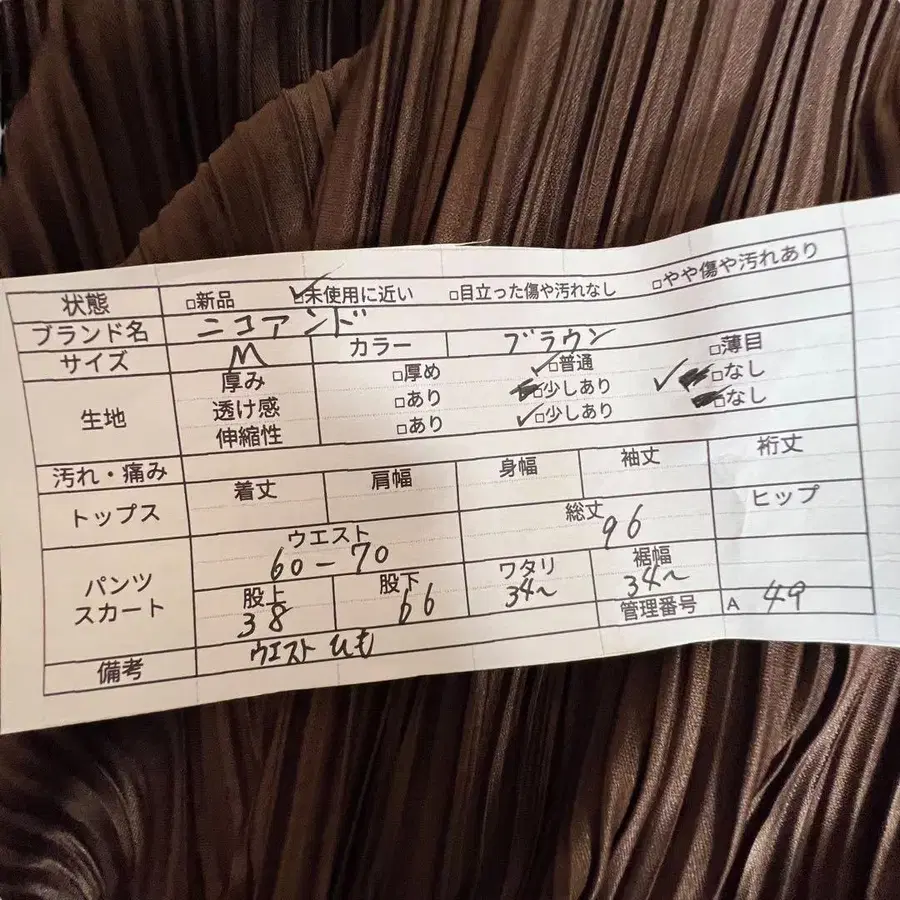 状態 □新品 ✓□未使用に近い □目立った傷や汚れなし □やや傷や汚れあり
ブランド名 ニコアンド
サイズ M カラー ブラウン
生地 厚み □厚め ✓□普通 □薄目
透け感 □あり □少しあり ✓□なし
伸縮性 □あり ✓□少しあり □なし
汚れ・痛み
トップス 着丈 肩幅 身幅 袖丈 裄丈
パンツ スカート ウエスト 60-70 総丈 96 ヒップ
股上 38 股下 66 ワタリ 34~ 裾幅 34~
管理番号 A 49
備考 ウエストひも